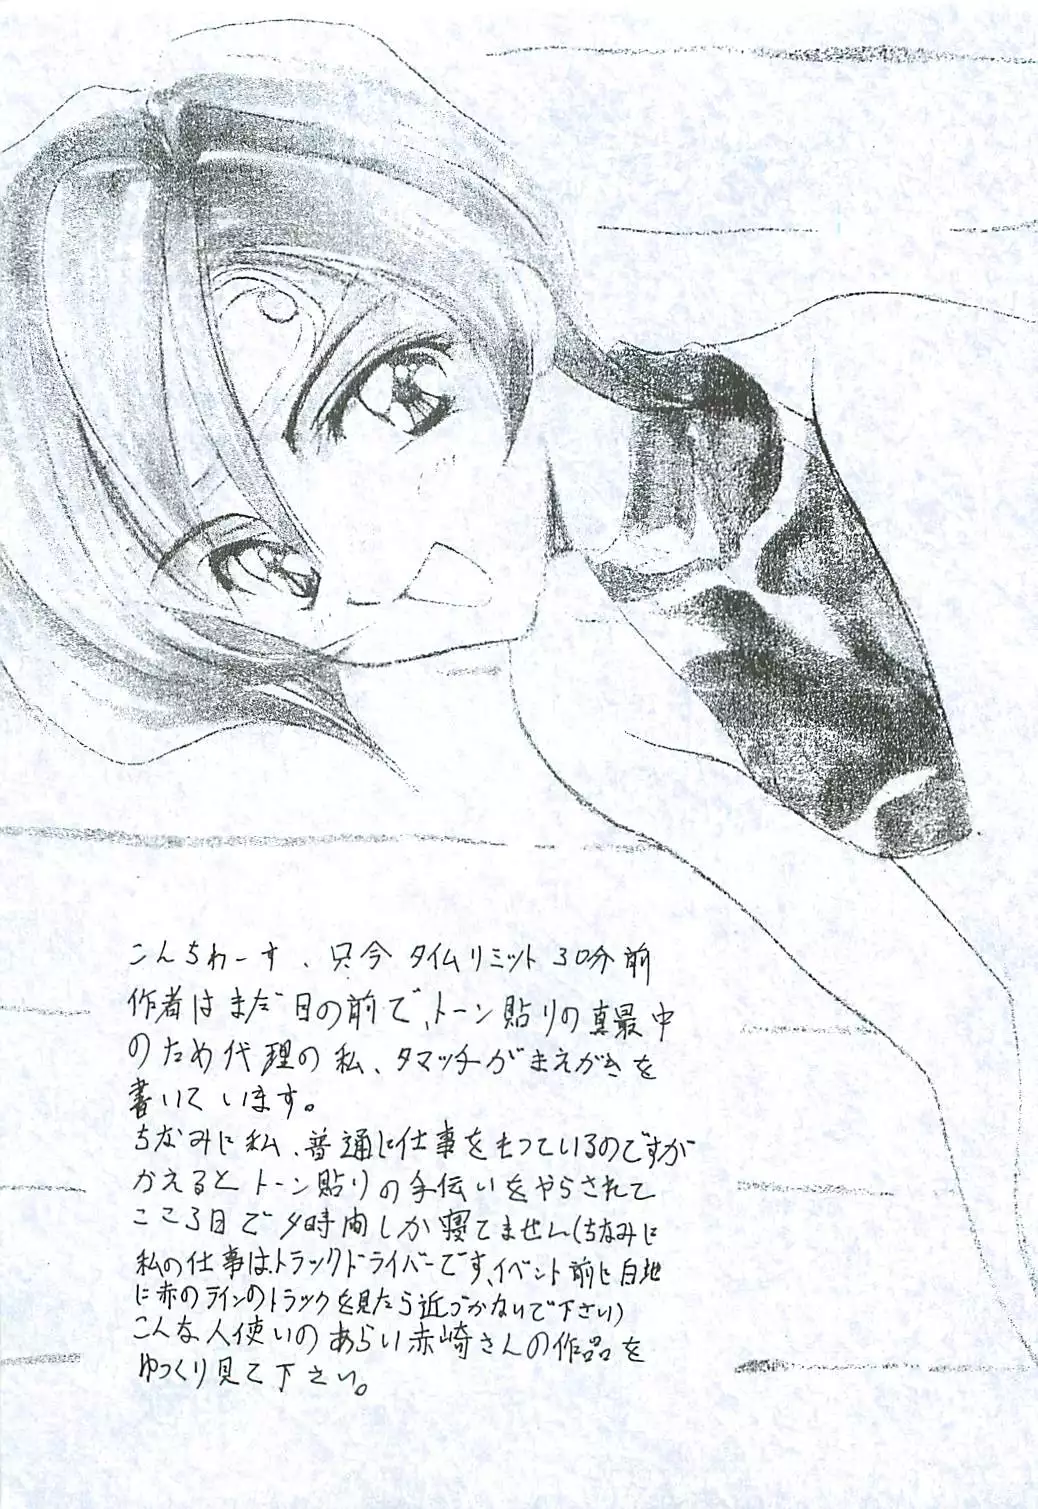 こんちわーす、只今タイムリミット30分前
作者はまだ目の前で、トーン貼りの真最中
のため代理の私、タマッチがまえがきを
書いています。
ちなみに私、普通に仕事をもっているのですが
かえるとトーン貼りの手伝いをやらされて
ここ3日で夕時間しか寝てません(ちなみに
私の仕事は、トラックドライバーです、イベント前に白地
に赤のラインのトラックを見たら近づかないで下さい)
こんな人使いのあらい赤崎さんの作品を
ゆっくり見て下さい。